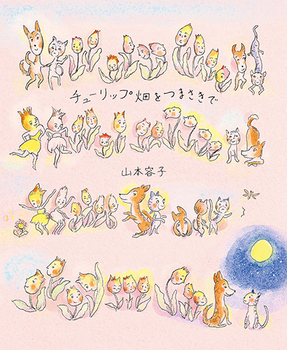 チューリップ畑をつまさきで
山本容子